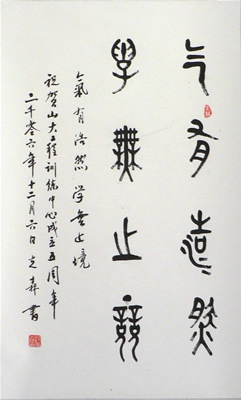 气有浩然
學無止境
氣有浩然 学無止境
祝贺山大工程训练中心成立五周年
二千零六年十二月六日 森书